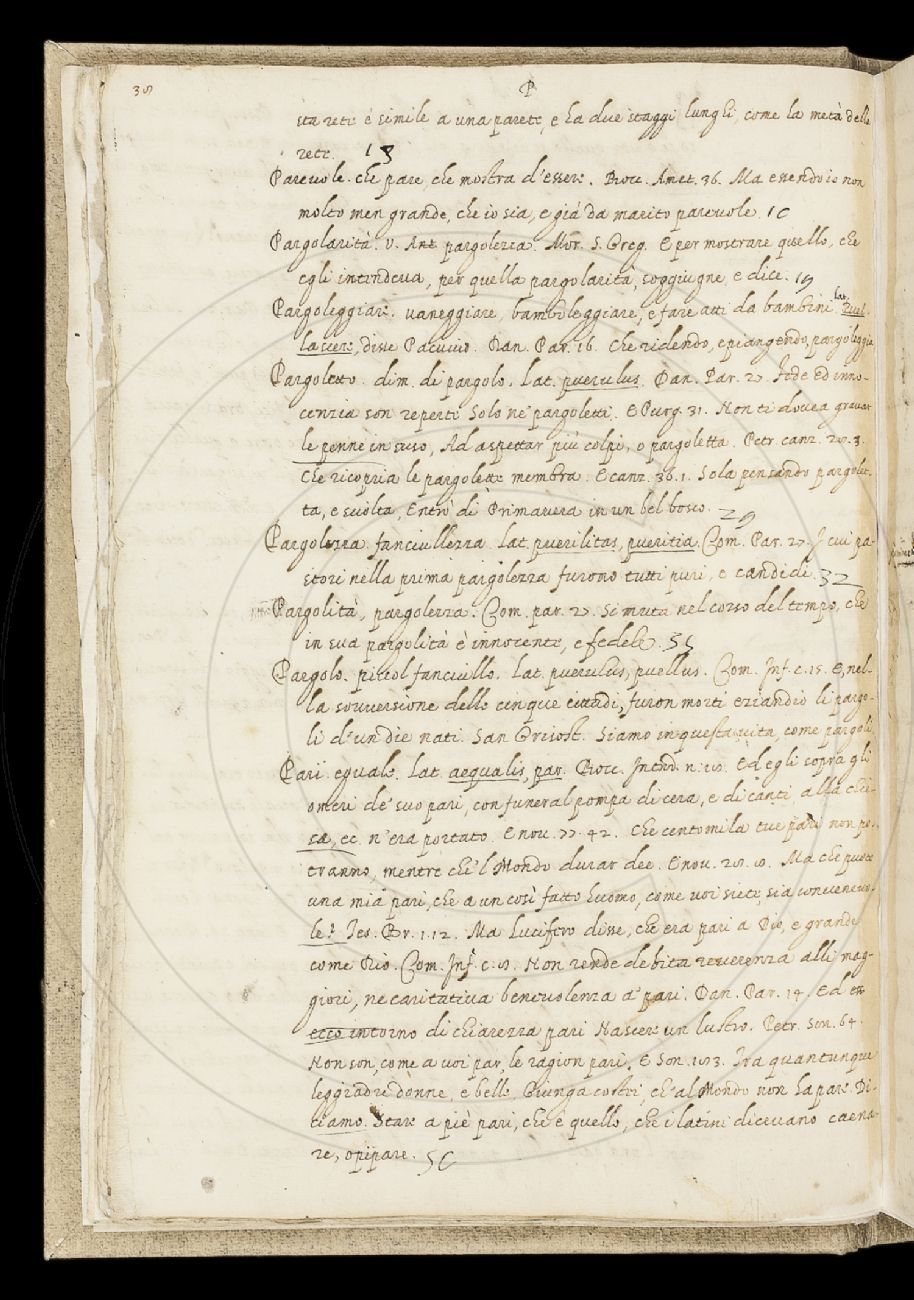 P
sta rete è simile a una parete, e ha due staggi lunghi, come la metà della
rete. 13
Parevole. che pare, che mostra d'essere. Bocc. Amet. 36. Ma essendo io non
molto men grande, che io sia, e già da marito parevole.
Pargolarità. v. Ant. pargolezza. Mor. S. Greg. E per mostrare quello, che
egli intendeva, per quella pargolarità, soggiugne, e dice.
Pargoleggiare. vaneggiare, bamboleggiare, e fare atti da bambini. lat.
lascere, disse Pacuvio. Dan. Par. 16. Che ridendo, e piangendo, pargoleggia
Pargoletto. dim. di pargolo. Lat. puerulus. Dan. Par. 27. Fede ed inno-
cenzia son reperte Solo ne' pargoletti. E Purg. 31. Non ti dovea gravar
le penne in suso, Ad aspettar più colpi, o pargoletta. Petr. canz. 28. 3.
Che ricopria le pargolette membra. E canz. 36. 1. Sola pensando pargolet-
ta, e sciolta, Entrò di Primavera in un bel bosco. 29
Pargolezza. fanciullezza. Lat. puerilitas, pueritia. Com. Par. 27. I cui pa-
stori nella prima pargolezza furono tutti puri, e candidi. 32
Pargolità, pargolezza. Com. par. 27. Si muta nel corso del tempo, che
in sua pargolità è innocente, e fedele.
Pargolo. piccol fanciullo. Lat. puerulus, puellus. Com. Inf. c. 15. E, nel-
la sovversione delle cinque cittadi, furon morti eziandio li pargo-
li d'un die nati. San Grisost. Siamo in questa vita, come pargoli
Pari. eguale. Lat. aequalis, par. Bocc. Introd. n. 18. Ed egli sopra gli
omeri de' suo pari, con funeral pompa di cera, e di canti, alla chie-
sa, ec. n'era portato. E nov. 77. 42. Che centomila tue pari non po-
tranno, mentre che 'l Mondo durar dee. E nov. 28. 8. Ma che puote
una mia pari, che a un così fatto huomo, come voi siete, sia convenevo-
le? Tes. Br. 1. 12. Ma Lucifero disse, che era pari a Dio, e grande
come Dio. Com. Inf. c. 8. Non rende debita reverenza alli mag-
giori, ne caritativa benevolenza a' pari. Dan. Par. 14. Ed
ecco intorno di chiarezza pari Nascere un lustro. Petr. Son. 64.
Non son, come a voi par, le ragion pari. E Son. 183. Fra quantunque
leggiadre donne, e belle, Giunga costei, ch'al Mondo non ha pare. Di-
ciamo. Stare a piè pari, che è quello, che i latini dicevano caena-
re, opipare.